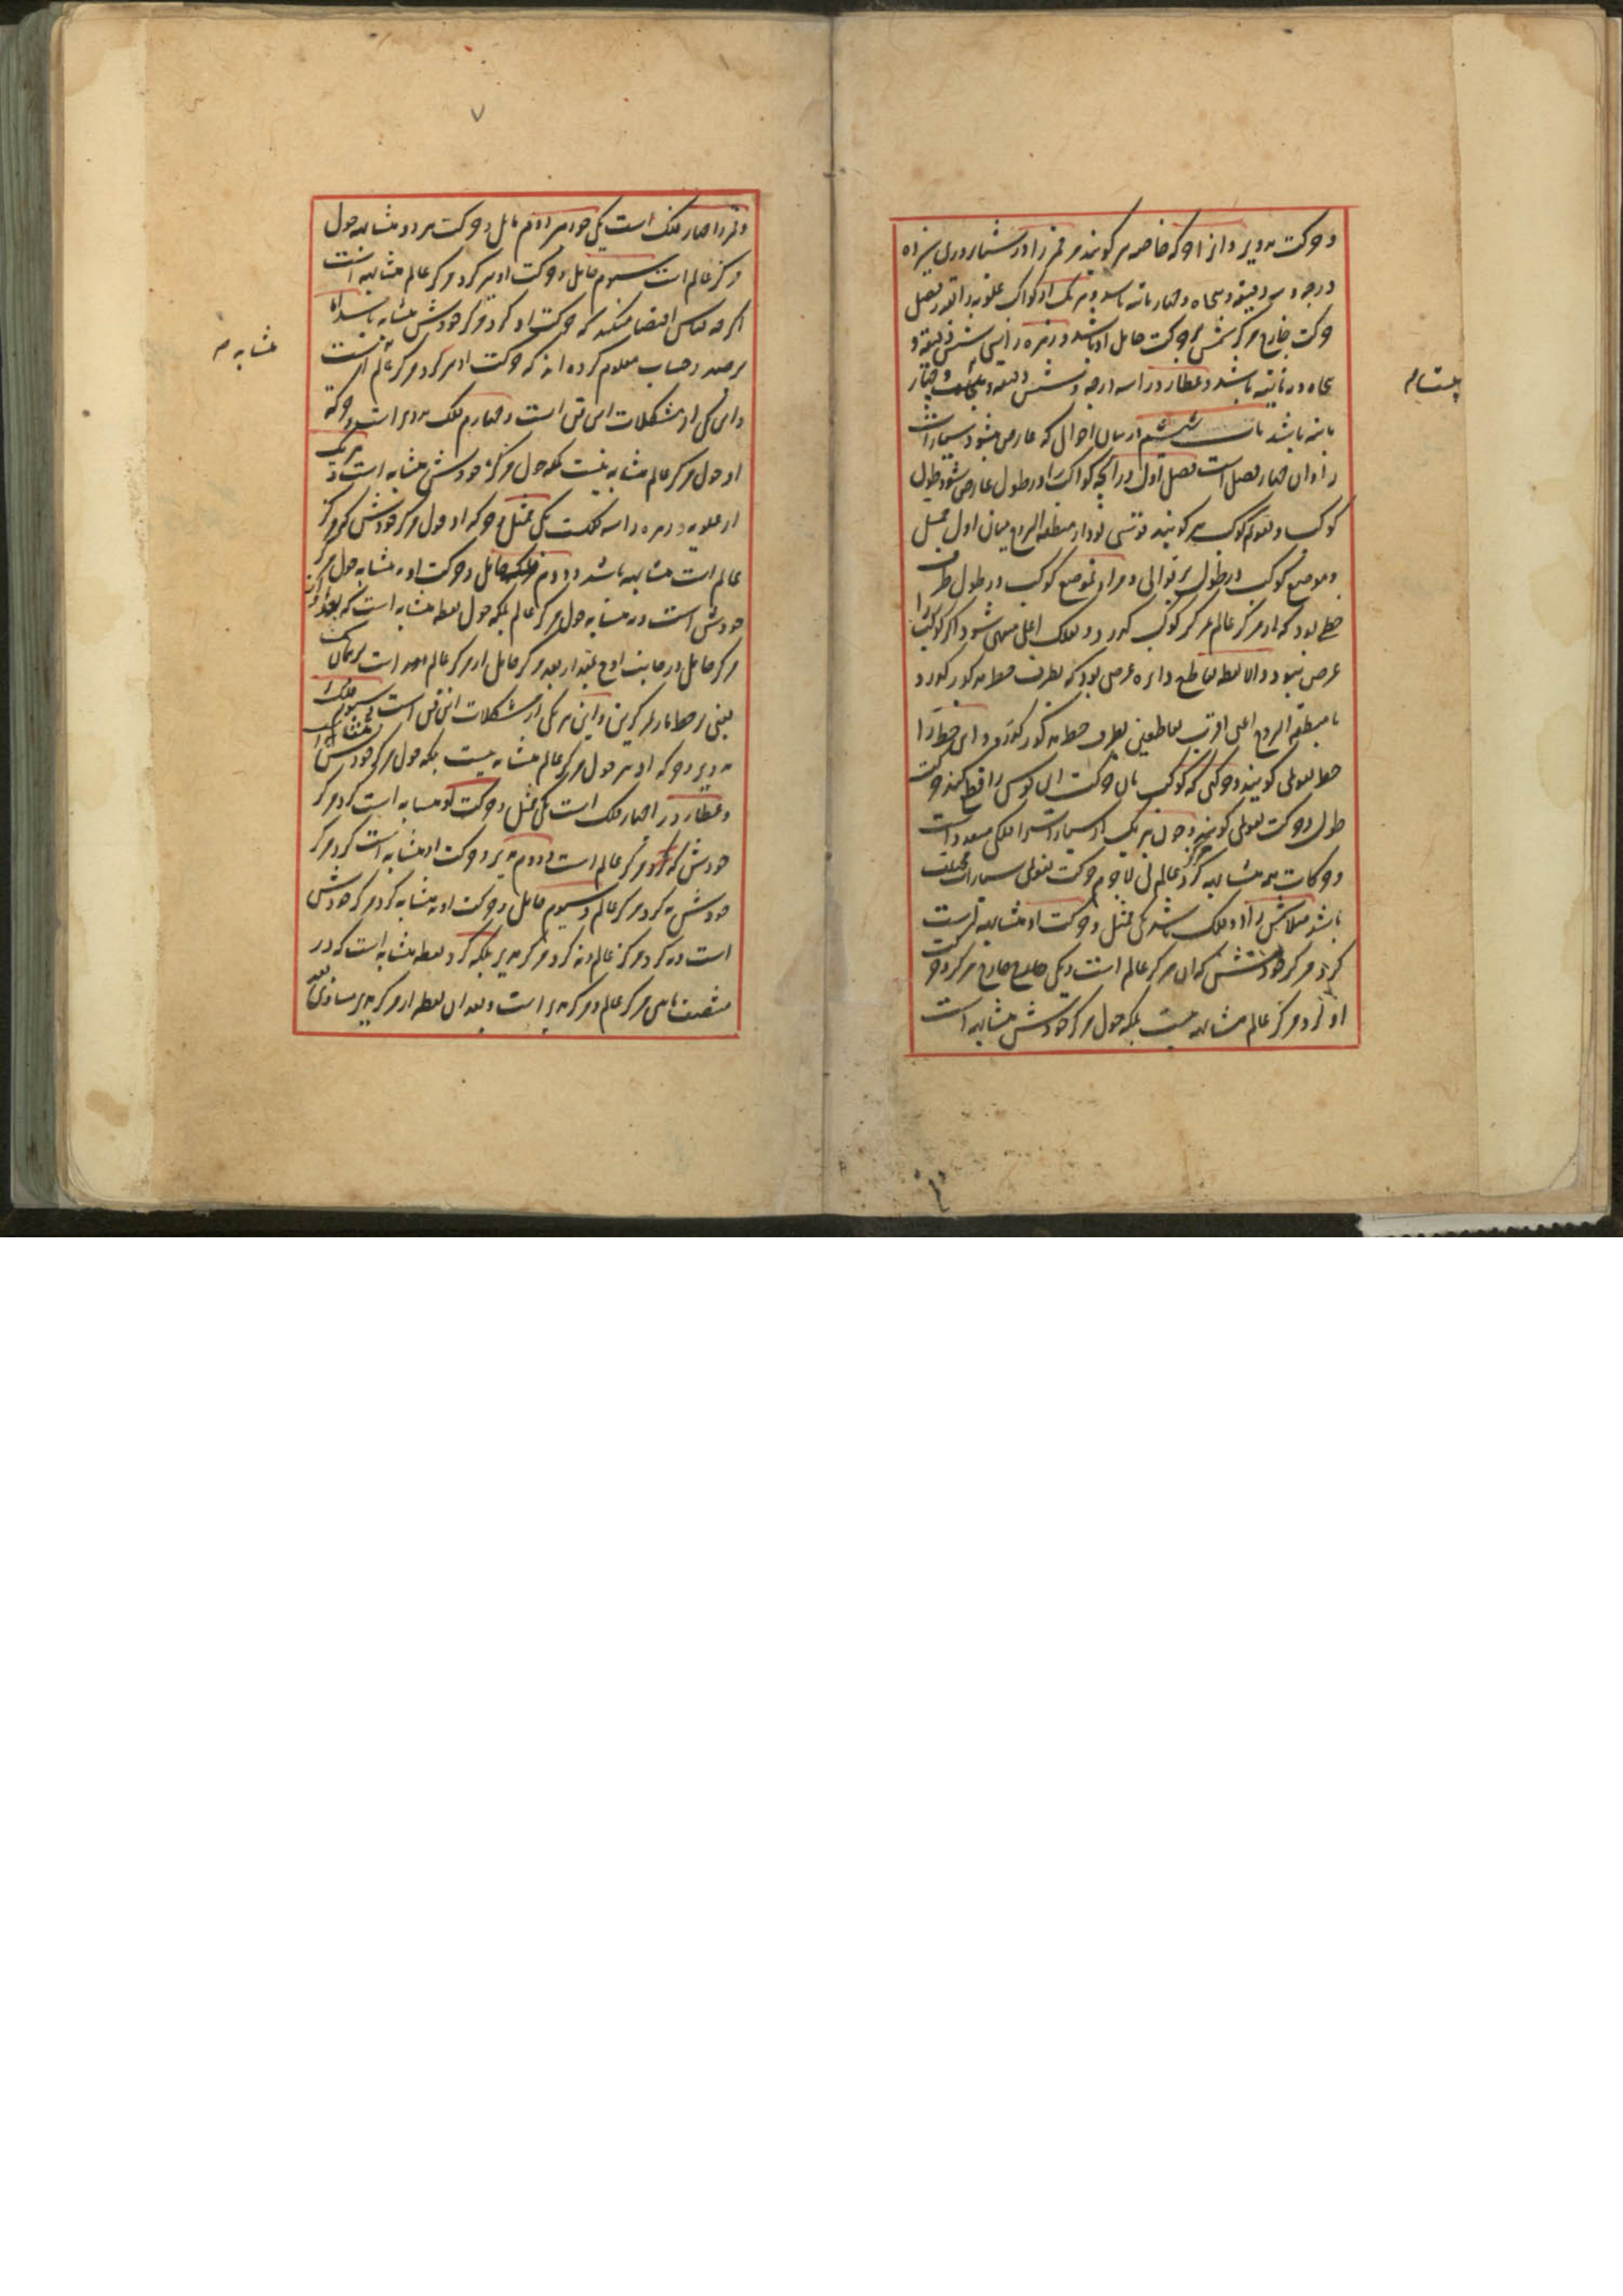 و حرکت تدویر و انرا حرکه خاصه می‌گویند مر قمر را در شبانروزی سیزده
درجه و سه دقیقه و پنجاه و چهار ثانیه باشد و هر یک از کواکب علویه را بقدر فضل
حرکت خارج مرکز شمس بر حرکت حامل او باشد و زهره را سی و شش دقیقه و
پنجاه و نه ثانیه باشد و عطارد را سه درجه و شش دقیقه و بیست و چهار
ثانیه باشد باب ششم در بیان احوالی که عارض میشود سیارات
را و ان چهار فصل است فصل اول در آنچه کواکب را در طول عارض شود طول
کوکب و تقویم کوکب هم گویند قوسی بود از منطقه البروج میان اول حمل
و موضع کوکب در طول بر توالی و مراد بموضع کوکب در طول طرف
خطی بود که از مرکز عالم بمرکز کوکب گذرد و بفلک اعلی منتهی شود اگر کوکب را
عرض نبود والا نقطه تقاطع دایره عرضی بود که بطرف خط مذکور گذرد
با منطقه البروج اعنی اقرب تقاطعین بطرف خط مذکور و این خط را
خط تقویمی گویند و حرکتی که کوکب بان حرکت این قوس را قطع کند حرکت
طول و حرکت تقویمی گویند و چون هر یک از سیارات را فلکی متعدد است
و حرکات همه متشابه گرد مرکز عالم نی لاجرم حرکت تقویمی سیارات مختلف
باشد مثلا شمس را دو فلک باشد یکی ممثل و حرکت او متشابه است
گرد مرکز خودش که ان مرکز عالم است و یکی خارج مرکز و حرکت
او گرد مرکز عالم متشابه نیست بلکه حول مرکز خودش متشابه است
و قمر را چهار فلک است یکی جوزهر دوم مایل و حرکت هر دو متشابه حول
مرکز عالم است سیوم حامل و حرکت او نیز گرد مرکز عالم متشابه است
اگرچه قیاس اقتضا میکند که حرکت او گرد مرکز خودش متشابه باشد اما
برصد و حساب معلوم کرده اند که حرکت او گرد مرکز عالم است
و این یکی از مشکلات این فن است و چهارم فلک تدویر است و حرکه
او حول مرکز عالم متشابه نیست بلکه حول مرکز خودش متشابه است و هر یک
از علویه و زهره را سه فلکست یکی ممثل و حرکه او حول مرکز خودش که مرکز
عالم است متشابه باشد و دوم فلک حامل و حرکت او نه متشابه حول مرکز
خودش است و نه متشابه حول مرکز عالم بلکه حول نقطه متشابه است که بعد او از
مرکز حامل در جانب اوج بمقدار بعد مرکز حامل از مرکز عالم است بر همان
یعنی بر خط مار بمرکزین و این نیز یکی از مشکلات این فن است سیوم فلک
تدویر و حرکه او نیز حول مرکز عالم متشابه نیست بلکه حول مرکز خودش متشابه است
و عطارد را چهار فلک است یکی ممثل و حرکت او متشابه است گرد مرکز
خودش که مرکز عالم است دوم مدیر و حرکت او متشابه است گرد مرکز
خودش نه گرد مرکز عالم و سیوم حامل و حرکت او نه متشابه گرد مرکز خودش
است و نه گرد مرکز عالم و نه گرد مرکز مدیر بلکه گرد نقطه متشابه است که در
منتصف مابین مرکز عالم و مرکز مدیر است و بعد ان نقطه از مرکز مدیر مساوی بعد
متشابه